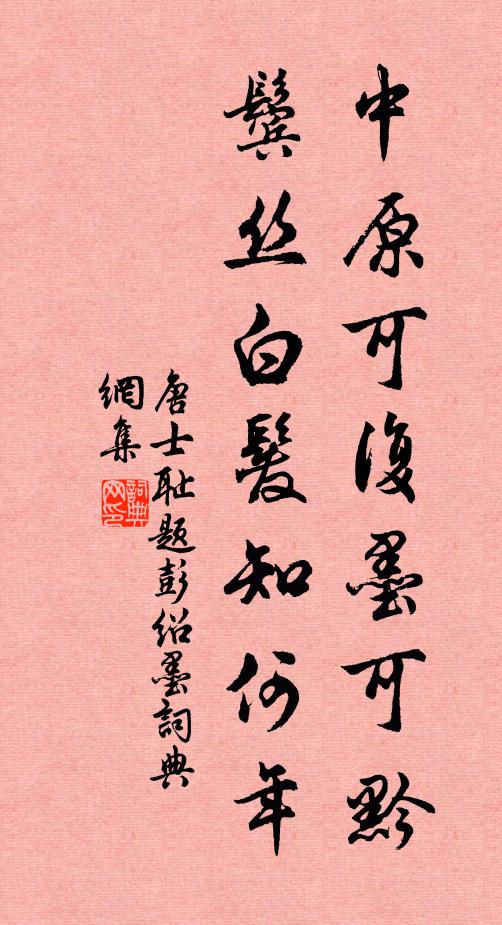 中原可復墨可黔
鬢丝白髮知何年
唐士耻题彭绍墨詞典
網集
詞典网印